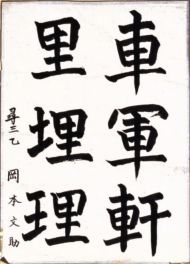 車軍軒
里埋理
尋三乙 岡本文助